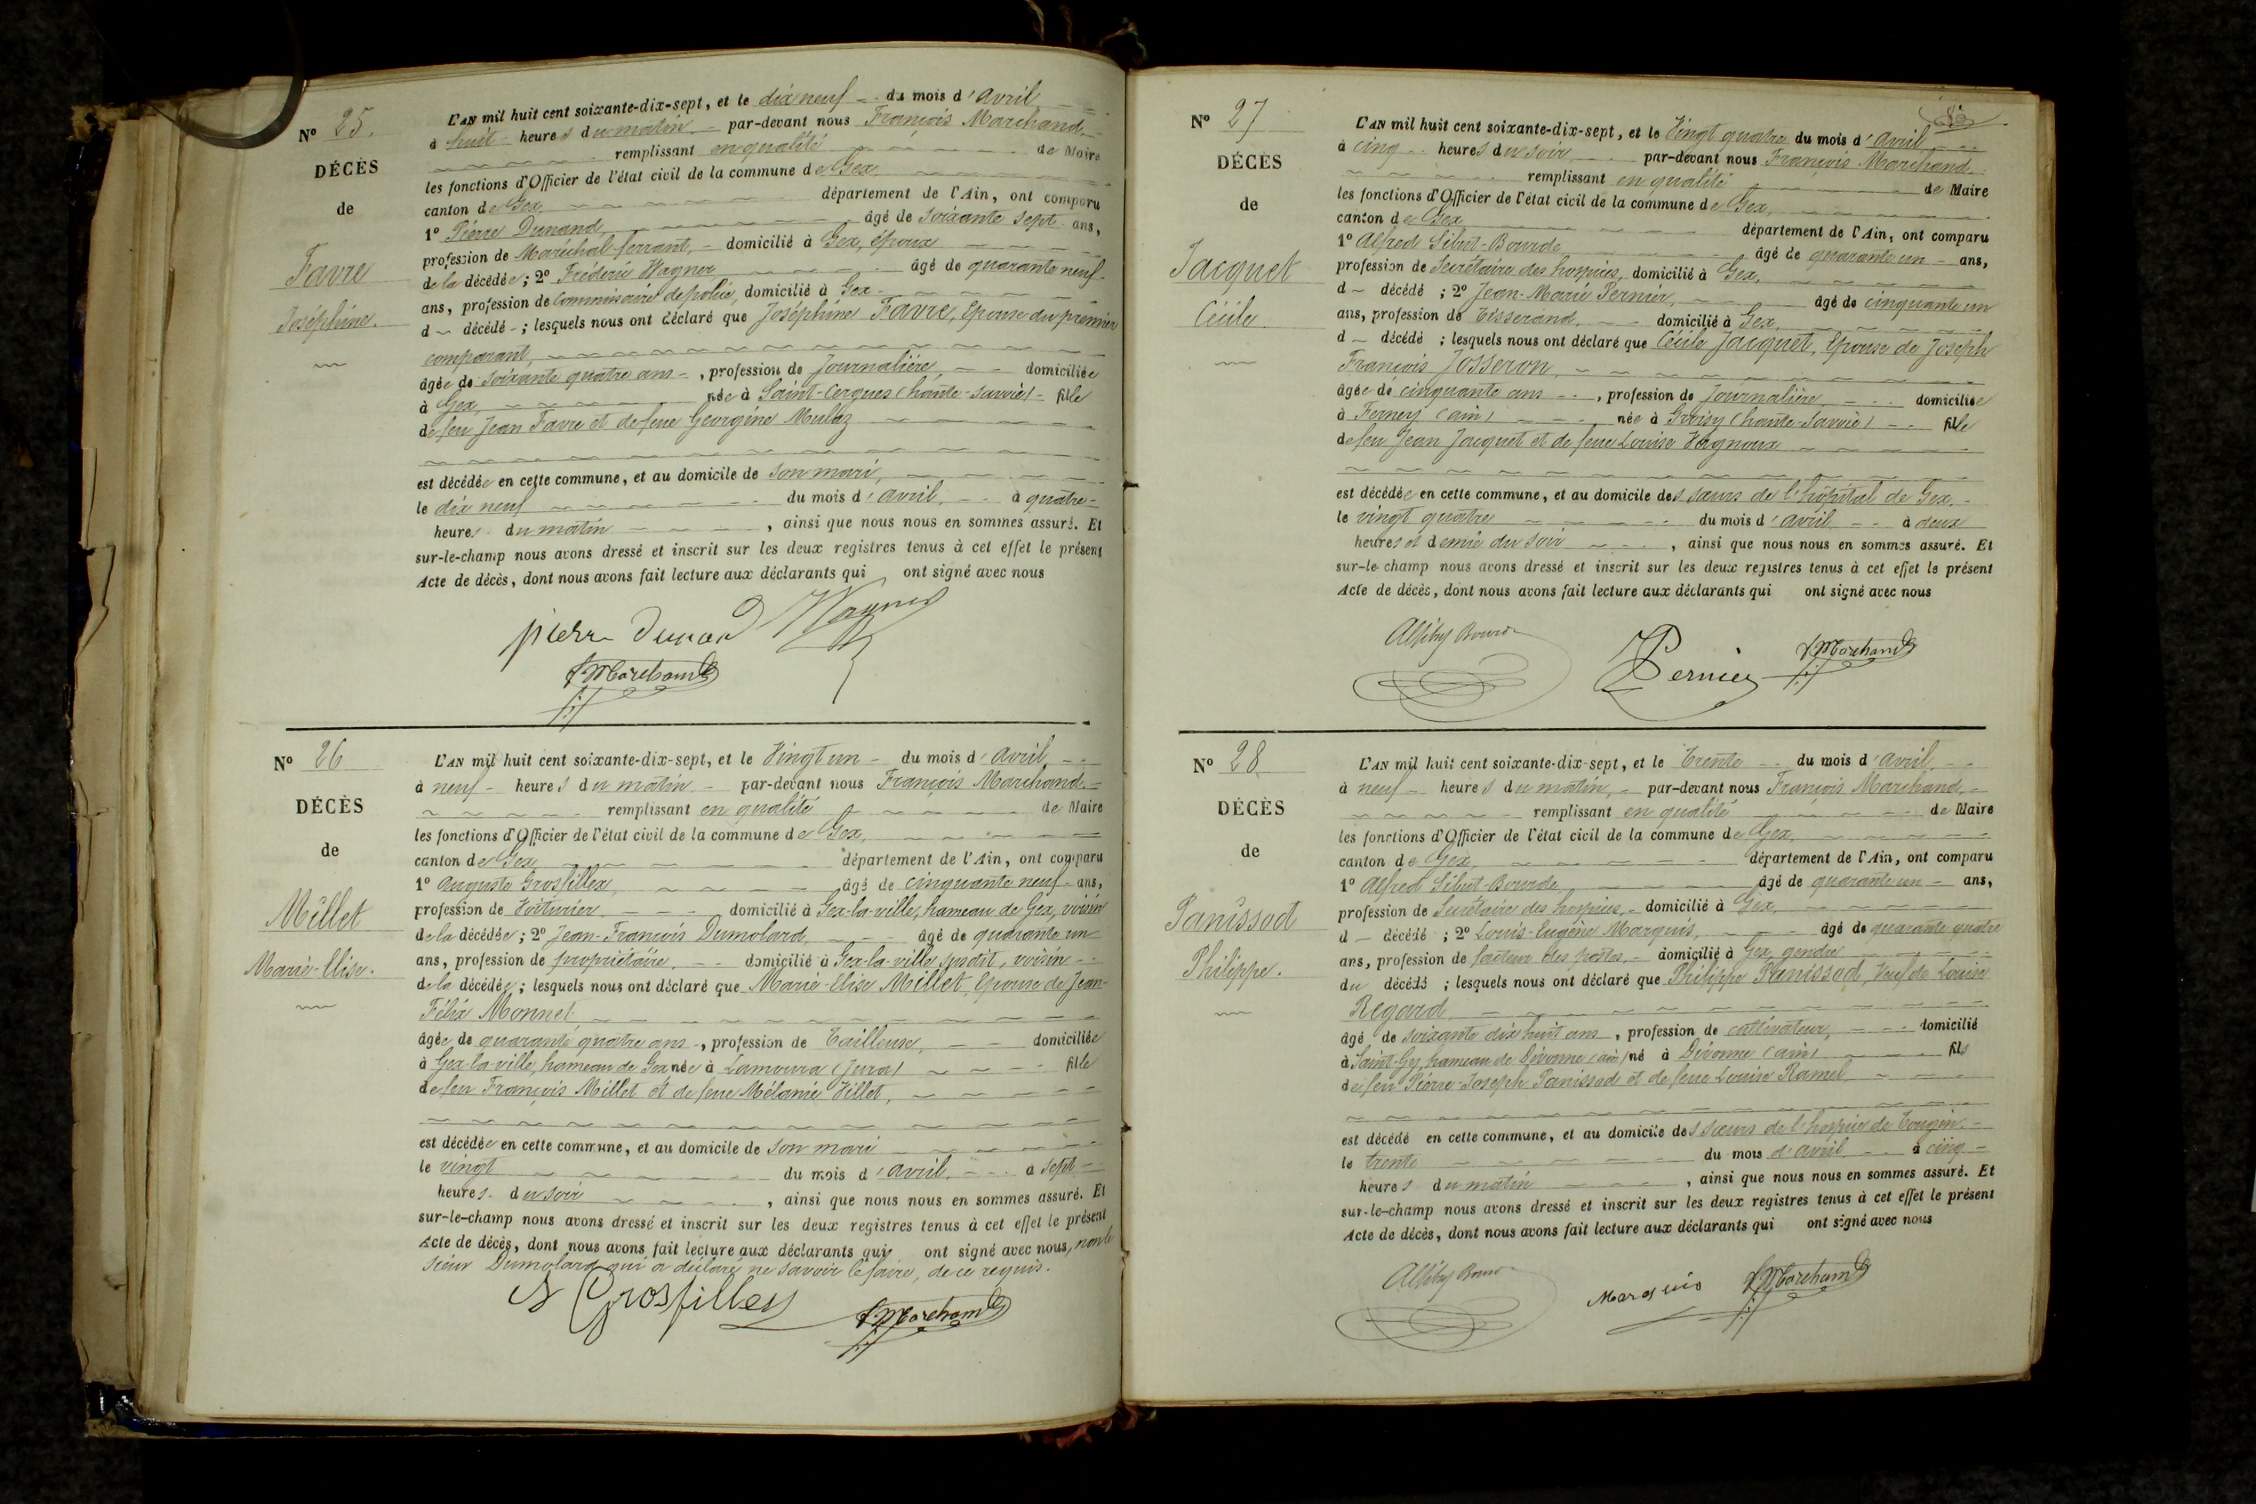 Nº 25.
DÉCÈS
de
Favre
Joséphine.
L'AN mil huit cent soixante-dix-sept, et le dix neuf du mois d'avril
à huit heures du matin par-devant nous François Marchand
remplissant en qualité de Maire
les fonctions d'Officier de l'état civil de la commune de Gex
canton de Gex département de l'Ain, ont comparu
1º Pierre Dunand, âgé de soixante sept ans,
profession de Maréchal ferrant, domicilié à Gex, époux
de la décédée; 2º Frédéric Wagner âgé de quarante neuf
ans, profession de Commissaire de police, domicilié à Gex
d décédé ; lesquels nous ont déclaré que Joséphine Favre, Epouse du premier
comparant,
âgée de soixante quatre ans, profession de Journalière, domiciliée
à Gex, née à Saint-Cergues (haute-savoie) fille
de feu Jean Favre et de feue Georgine Mulaz
est décédée en cette commune, et au domicile de son mari,
le dix neuf du mois d'avril, à quatre
heures du matin, ainsi que nous nous en sommes assuré. Et
sur-le-champ nous avons dressé et inscrit sur les deux registres tenus à cet effet le présent
Acte de décès, dont nous avons fait lecture aux déclarants qui ont signé avec nous
pierre dunand Wagner
f. Marchand
Nº 26
DÉCÈS
de
Millet
Marie-Elise.
L'AN mil huit cent soixante-dix-sept, et le Vingt un du mois d'avril,
à neuf heures du matin par-devant nous François Marchand
remplissant en qualité de Maire
les fonctions d'Officier de l'état civil de la commune de Gex,
canton de Gex département de l'Ain, ont comparu
1º Auguste Grosfillex, âgé de cinquante neuf ans,
profession de Voiturier, domicilié à Gex-la-ville, hameau de Gex, voisin
de la décédée; 2º Jean-François Dumolard, âgé de quarante un
ans, profession de propriétaire, domicilié à Gex-la-ville susdit, voisin
de la décédée; lesquels nous ont déclaré que Marie-Elise Millet, Epouse de Jean-
Félix Monnet
âgée de quarante quatre ans, profession de Tailleuse, domiciliée
à Gex-la-ville, hameau de Gex née à Lamoura (Jura) fille
de feu François Millet et de feue Mélanie Villet,
est décédée en cette commune, et au domicile de son mari
le vingt du mois d'avril, à sept
heures du soir, ainsi que nous nous en sommes assuré. Et
sur-le-champ nous avons dressé et inscrit sur les deux registres tenus à cet effet le présent
Acte de décès, dont nous avons fait lecture aux déclarants qui ont signé avec nous, non le
sieur Dumolard qui a déclaré ne savoir le faire, de ce requis.
A Grosfillex
f. Marchand
Nº 27
DÉCÈS
de
Jacquet
Cécile
L'AN mil huit cent soixante-dix-sept, et le Vingt quatre du mois d'avril
à cinq heures du soir par-devant nous François Marchand
remplissant en qualité de Maire
les fonctions d'Officier de l'état civil de la commune de Gex,
canton de Gex département de l'Ain, ont comparu
1º Alfred Sibut-Bourde âgé de quarante un ans,
profession de Secrétaire des hospices, domicilié à Gex,
d décédé ; 2º Jean-Marie Pernier, âgé de cinquante un
ans, profession de Tisserand, domicilié à Gex,
d décédé ; lesquels nous ont déclaré que Cécile Jacquet, Epouse de Joseph
François Josseron,
âgée de cinquante ans, profession de Journalière, domiciliée
à Ferney (ain) née à Groisy (haute-Savoie) fille
de feu Jean Jacquet et de feue Louise Vagnoux
est décédée en cette commune, et au domicile des sœurs de l'hôpital de Gex,
le vingt quatre du mois d'avril à deux
heures et demie du soir, ainsi que nous nous en sommes assuré. Et
sur-le-champ nous avons dressé et inscrit sur les deux registres tenus à cet effet le présent
Acte de décès, dont nous avons fait lecture aux déclarants qui ont signé avec nous
Pernier f. Marchand
Nº 28
DÉCÈS
de
Panissod
Philippe.
L'AN mil huit cent soixante-dix-sept, et le Trente du mois d'avril,
à neuf heures du matin, par-devant nous François Marchand,
remplissant en qualité de Maire
les fonctions d'Officier de l'état civil de la commune de Gex,
canton de Gex, département de l'Ain, ont comparu
1º Alfred Sibut-Bourde âgé de quarante un ans,
profession de Secrétaire des hospices, domicilié à Gex,
d décédé ; 2º Louis-Eugène Marquis, âgé de quarante quatre
ans, profession de facteur des postes, domicilié à Gex, gendre
du décédé ; lesquels nous ont déclaré que Philippe Panissod, Veuf de Louise
Regard
âgé de soixante dix huit ans, profession de cultivateur, domicilié
à Saint-Gy, hameau de Divonne (ain) né à Divonne (ain) fils
de feu Pierre-Joseph Panissod et de feue Louise Ramel
est décédé en cette commune, et au domicile des sœurs de l'hospice de Tougin,
le trente du mois d'avril à cinq
heures du matin, ainsi que nous nous en sommes assuré. Et
sur-le-champ nous avons dressé et inscrit sur les deux registres tenus à cet effet le présent
Acte de décès, dont nous avons fait lecture aux déclarants qui ont signé avec nous
Marquis f. Marchand